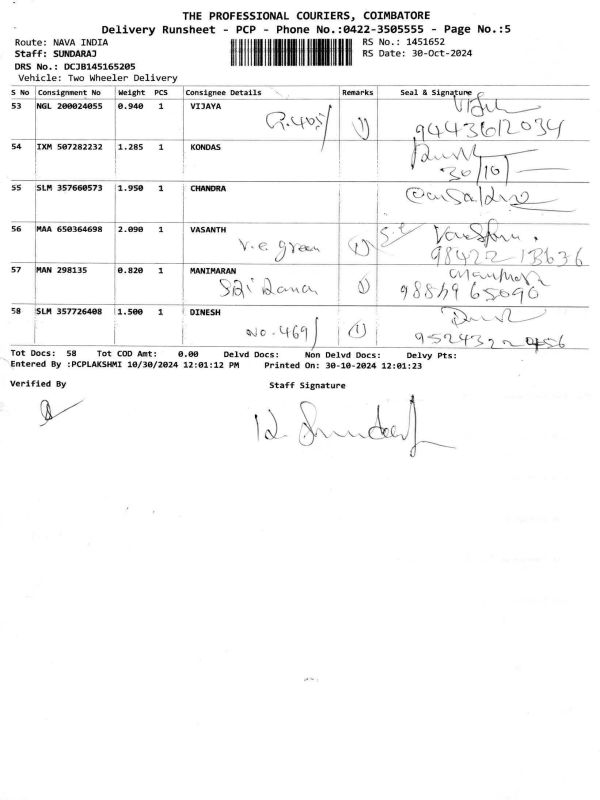 THE PROFESSIONAL COURIERS, COIMBATORE
Delivery Runsheet - PCP - Phone No.:0422-3505555 - Page No.:5
Route: NAVA INDIA RS No.: 1451652
Staff: SUNDARAJ RS Date: 30-Oct-2024
DRS No.: DCJB145165205
Vehicle: Two Wheeler Delivery
S No Consignment No Weight PCS Consignee Details Remarks Seal & Signature
53 NGL 200024055 0.940 1 VIJAYA
R.405/ 1 9443612034
54 IXM 507282232 1.285 1 KONDAS
30/10/
55 SLM 357660573 1.950 1 CHANDRA
56 MAA 650364698 2.090 1 VASANTH
V.e green 1 98422 13636
57 MAN 298135 0.820 1 MANIMARAN
1
58 SLM 357726408 1.500 1 DINESH
NO. 469/ 1
Tot Docs: 58 Tot COD Amt: 0.00 Delvd Docs: Non Delvd Docs: Delvy Pts:
Entered By :PCPLAKSHMI 10/30/2024 12:01:12 PM Printed On: 30-10-2024 12:01:23
Verified By Staff Signature